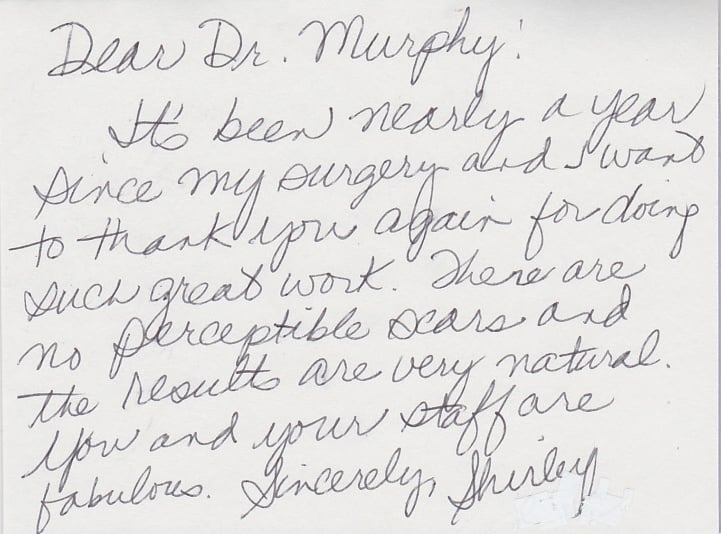 Dear Dr. Murphy:
It's been nearly a year
since my surgery and I want
to thank you again for doing
such great work. There are
no perceptible scars and
the results are very natural.
You and your staff are
fabulous. Sincerely, Shirley